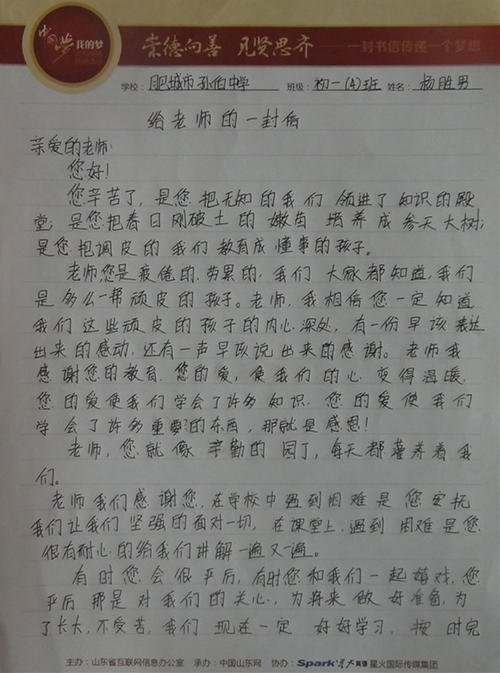 中国梦 我的梦
崇德向善 见贤思齐 一封书信传递一个梦想
学校: 肥城市孙伯中学 班级: 初一(4)班 姓名: 杨胜男
给老师的一封信
亲爱的老师:
您好!
您辛苦了,是您把无知的我们领进了知识的殿
堂;是您把春日刚破土的嫩苗培养成参天大树;
是您把调皮的我们教育成懂事的孩子。
老师,您是疲倦的,劳累的,我们大家都知道,我们
是多么一帮顽皮的孩子。老师,我相信您一定知道
我们这些顽皮的孩子的内心深处,有一份早该表达
出来的感动,还有一声早该说出来的感谢。老师我
感谢您的教育,您的爱,使我们的心变得温暖,
您的爱使我们学会了许多知识,您的爱使我们
学会了许多重要的东西,那就是感恩!
老师,您就像辛勤的园丁,每天都
养着我
们。
老师我们感谢您,在学校中遇到困难是您安抚
我们让我们坚强的面对一切,在课堂上,遇到困难是您
很有耐心的给我们讲解一遍又一遍。
有时您会很严厉,有时您和我们一起嬉戏,您
严厉那是对我们的关心,为将来做好准备,为
了长大,不受苦,我们现在一定好好学习,按时完
主办:山东省互联网信息办公室 承办:中国山东网 协办:Spark星火英语 星火国际传媒集团